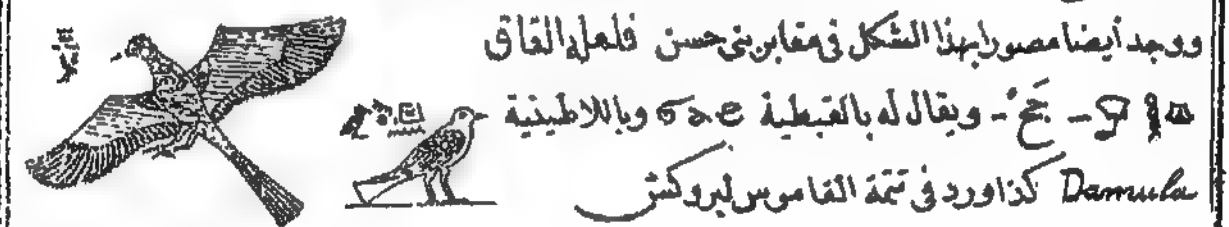 ووجد أيضا مصورا بهذا الشكل فى مقابر بنى حسن فلعله القاق
- جَخ - ويقال له بالقبطية وباللاطينية
Damula كذا ورد فى تتمة القاموس لبروكش